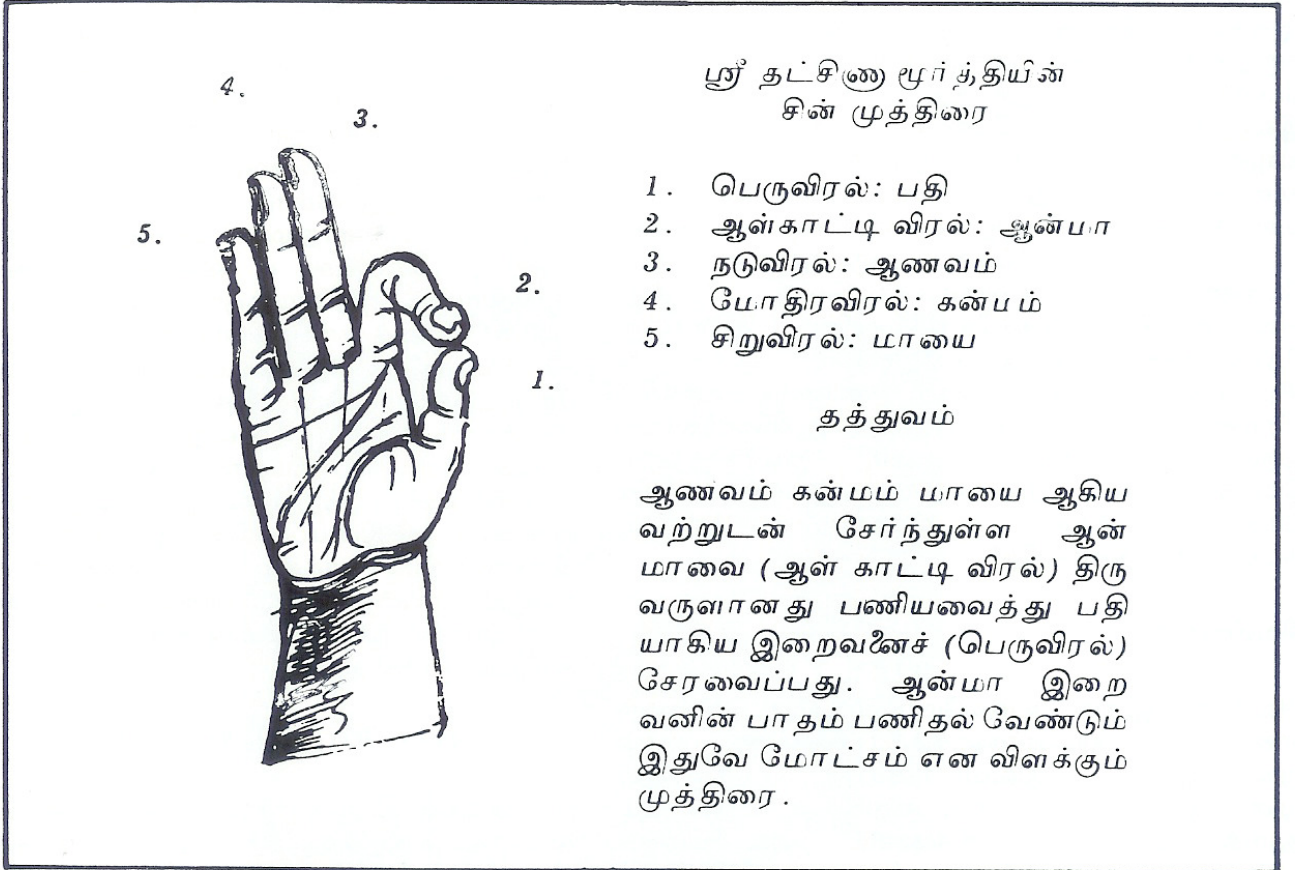 4.
3.
5.
2.
1.
ஸ்ரீ தட்சிணாமூர்த்தியின்
சின் முத்திரை
1. பெருவிரல்: பதி
2. ஆள்காட்டி விரல்: ஆன்மா
3. நடுவிரல்: ஆணவம்
4. மோதிரவிரல்: கன்மம்
5. சிறுவிரல்: மாயை
தத்துவம்
ஆணவம் கன்மம் மாயை ஆகிய
வற்றுடன் சேர்ந்துள்ள ஆன்
மாவை (ஆள் காட்டி விரல்) திரு
வருளானது பணியவைத்து பதி
யாகிய இறைவனைச் (பெருவிரல்)
சேரவைப்பது. ஆன்மா இறை
வனின் பாதம் பணிதல் வேண்டும்
இதுவே மோட்சம் என விளக்கும்
முத்திரை.